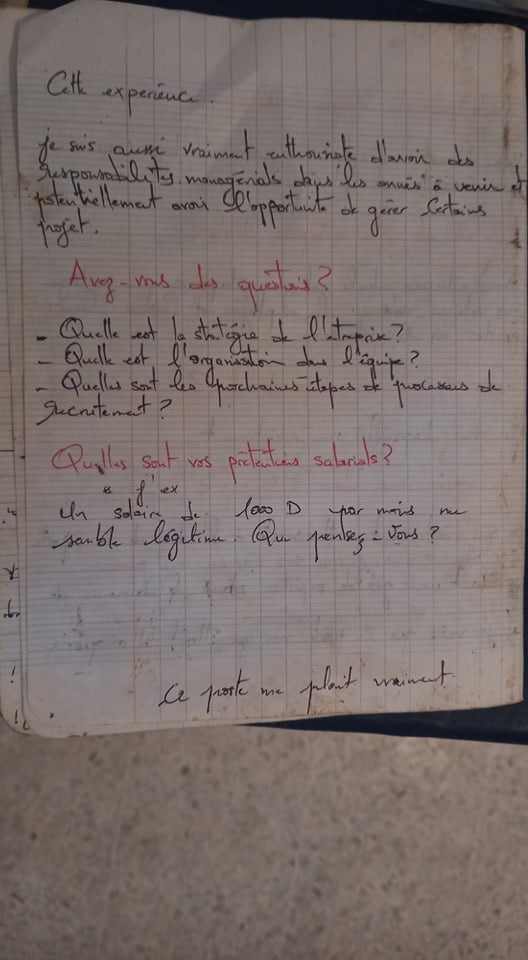 Cette expérience.
je suis aussi vraiment enthousiaste d'avoir des
responsabilités managérials dans les années à venir et
potentiellement avoir l'opportunité de gérer certains
projet.
Avez-vous des questions?
- Quelle est la stratégie de l'etreprise?
- Quelle est l'organisation dans l'équipe?
- Quelles sont les prochaines étapes de processus de
recrutement?
Quelles sont vos prétentions salarials?
Un salaire de 1000 D par mois me
semble légitime. Qu pensez-vous?
Ce poste me plait vraiment.